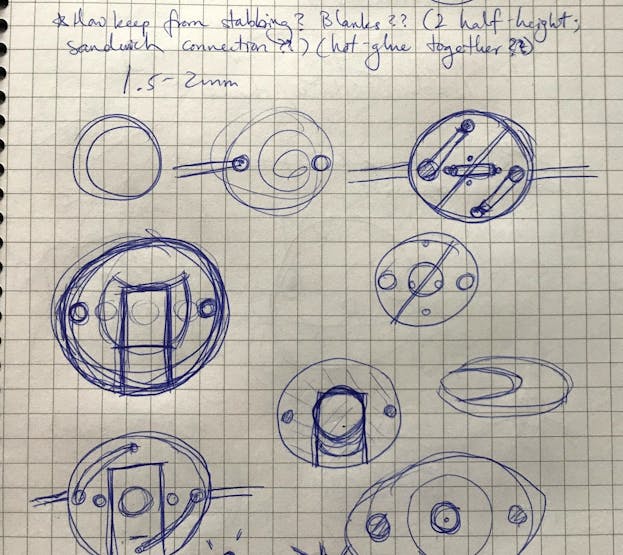 * How keep from stabbing? Blanks?? (2 half-height;
sandwich connection ??) (hot-glue together ??)
1.5-2mm